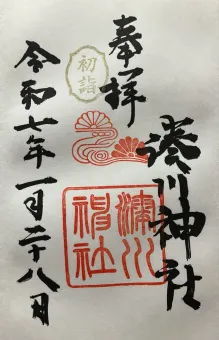 奉拝
湊川神社
初詣
湊川神社
令和七年一月二十八日